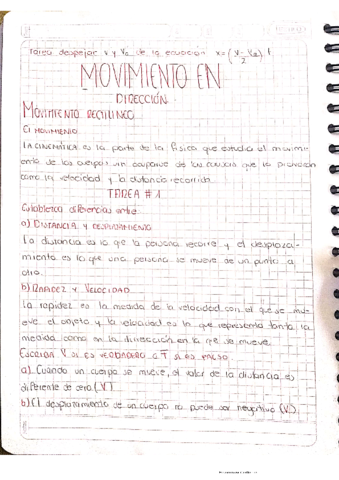 Tarea despejar v y v₀ de la ecuacion x=(v-v₀/2).t
MOVIMIENTO EN
DIRECCIÓN
MOVIMIENTO RECTILINEO
El MOVIMIENTO
LA CINEMÁTICA: es la parte de la física que estudia el movimi-
ento de los cuerpos sin ocuparse de las causas que lo provocan
como la velocidad y la distancia recorrida
TAREA #1
Establezca diferencias entre:
a) DISTANCIA Y DESPLAZAMIENTO
La distancia es lo que la persona recorre y el desplaza-
miento es lo que una persona se mueve de un punto a
otro.
b) RAPIDEZ Y VELOCIDAD
La rapidez es la medida de la velocidad con el que se mu-
eve el objeto y la velocidad es la que representa tanto la
medida como en la dirección en la que se mueve.
ESCRIBA V SI ES VERDADERO O F SI ES FALSO
a) Cuando un cuerpo se mueve, el valor de la distancia es
diferente de cero (V)
b) El desplazamiento de un cuerpo no puede ser negativo (V)